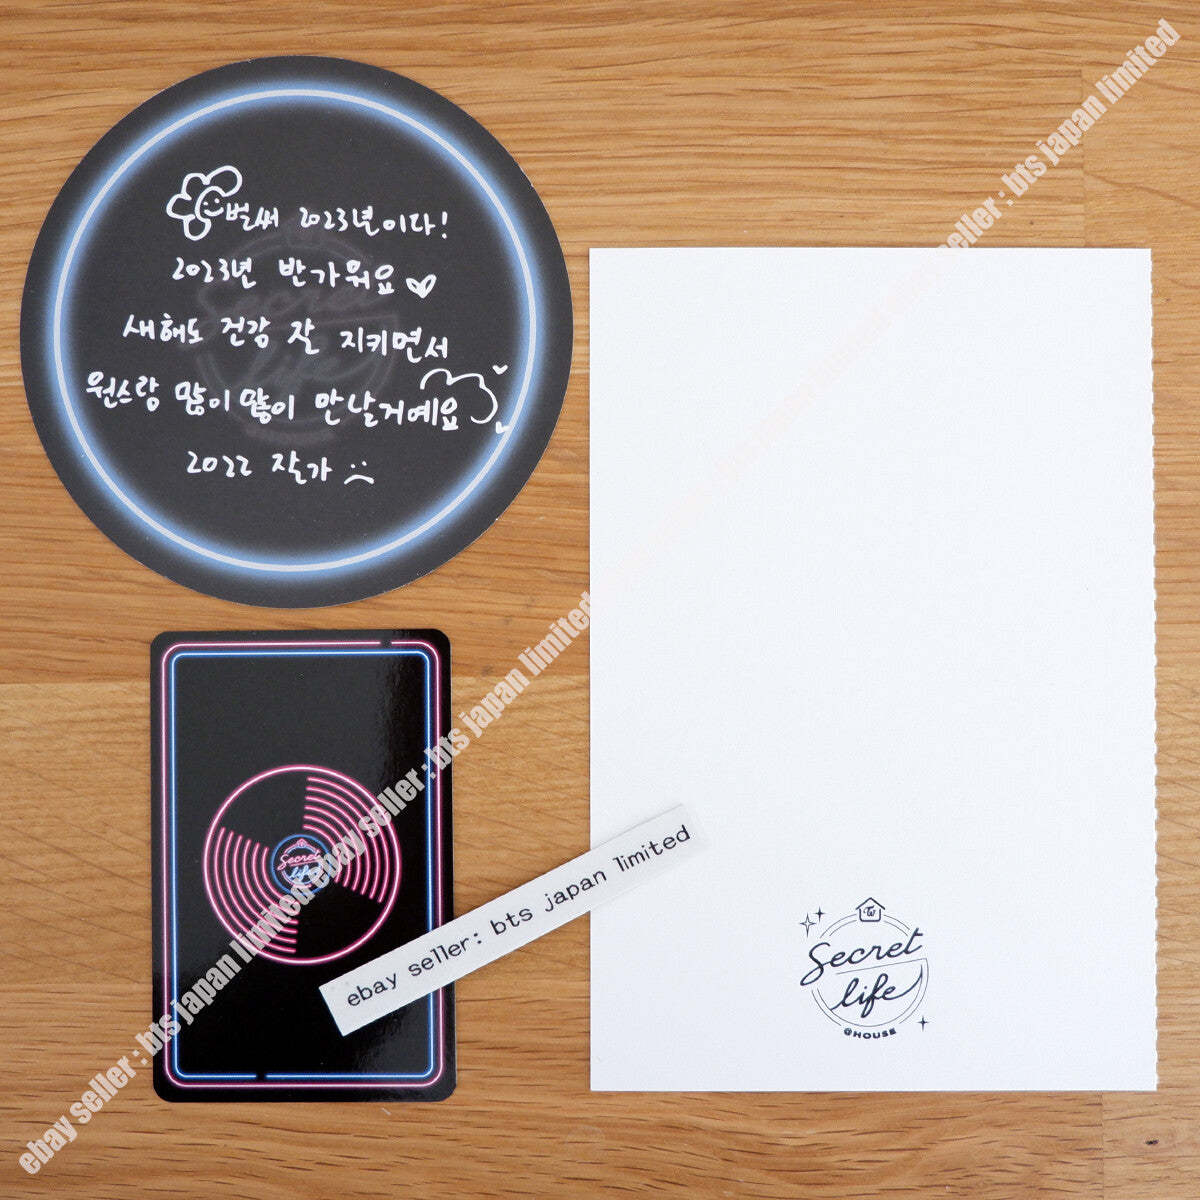 벌써 2023년이다!
2023년 반가워요
새해도 건강 잘 지키면서
원스랑 많이많이 만날거예요
2022 잘가
Secret
life
Secret
life
Secret
life
@HOUSE
ebay seller: bts japan limited
ebay seller : bts japan limited ebay seller : bts japan limited ebay seller : bts japan limited